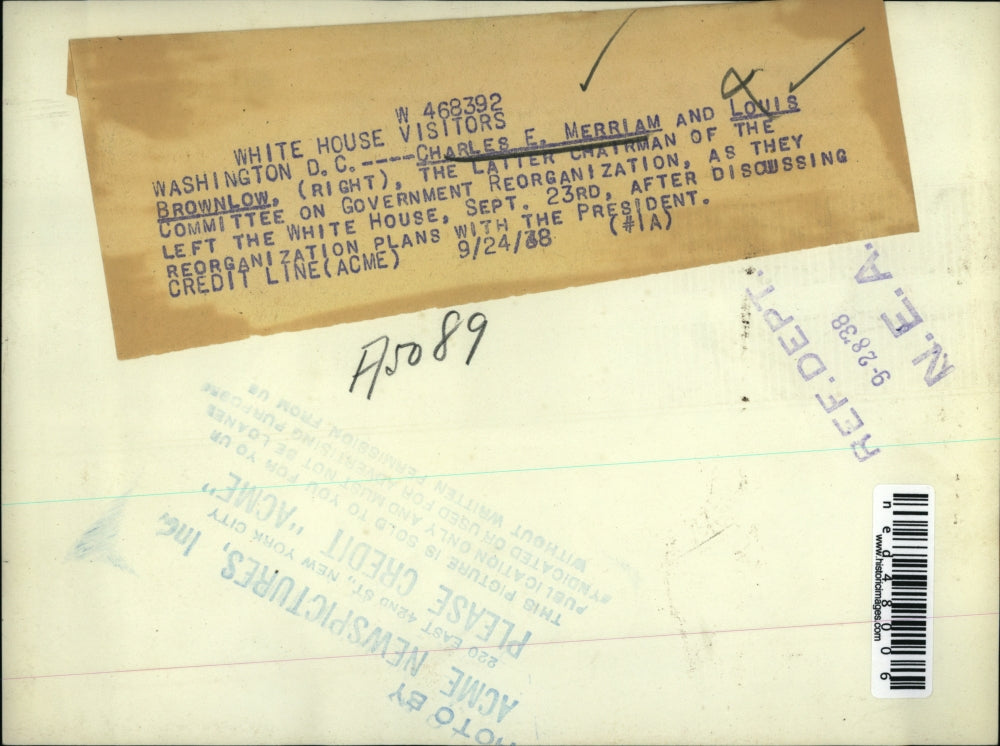 W 468392
WHITE HOUSE VISITORS
WASHINGTON D.C. ----CHARLES E. MERRIAM AND LOUIS
BROWNLOW, (RIGHT), THE LATTER CHAIRMAN OF THE
COMMITTEE ON GOVERNMENT REORGANIZATION, AS THEY
LEFT THE WHITE HOUSE, SEPT. 23RD, AFTER DISCUSSING
REORGANIZATION PLANS WITH THE PRESIDENT.
CREDIT LINE(ACME) 9/24/38 (#1A)
A5089
REF. DEPT.
9-28'38
N.E.A.
HOTO BY
ACME NEWSPICTURES, Inc.
220 EAST 42ND ST., NEW YORK CITY
PLEASE CREDIT "ACME"
THIS PICTURE IS SOLD TO YOU FOR YOUR
PUBLICATION ONLY AND MUST NOT BE LOANED
SYNDICATED OR USED FOR ADVERTISING PURPOSES
WITHOUT WRITTEN PERMISSION FROM US
ned48006
www.historicimages.com